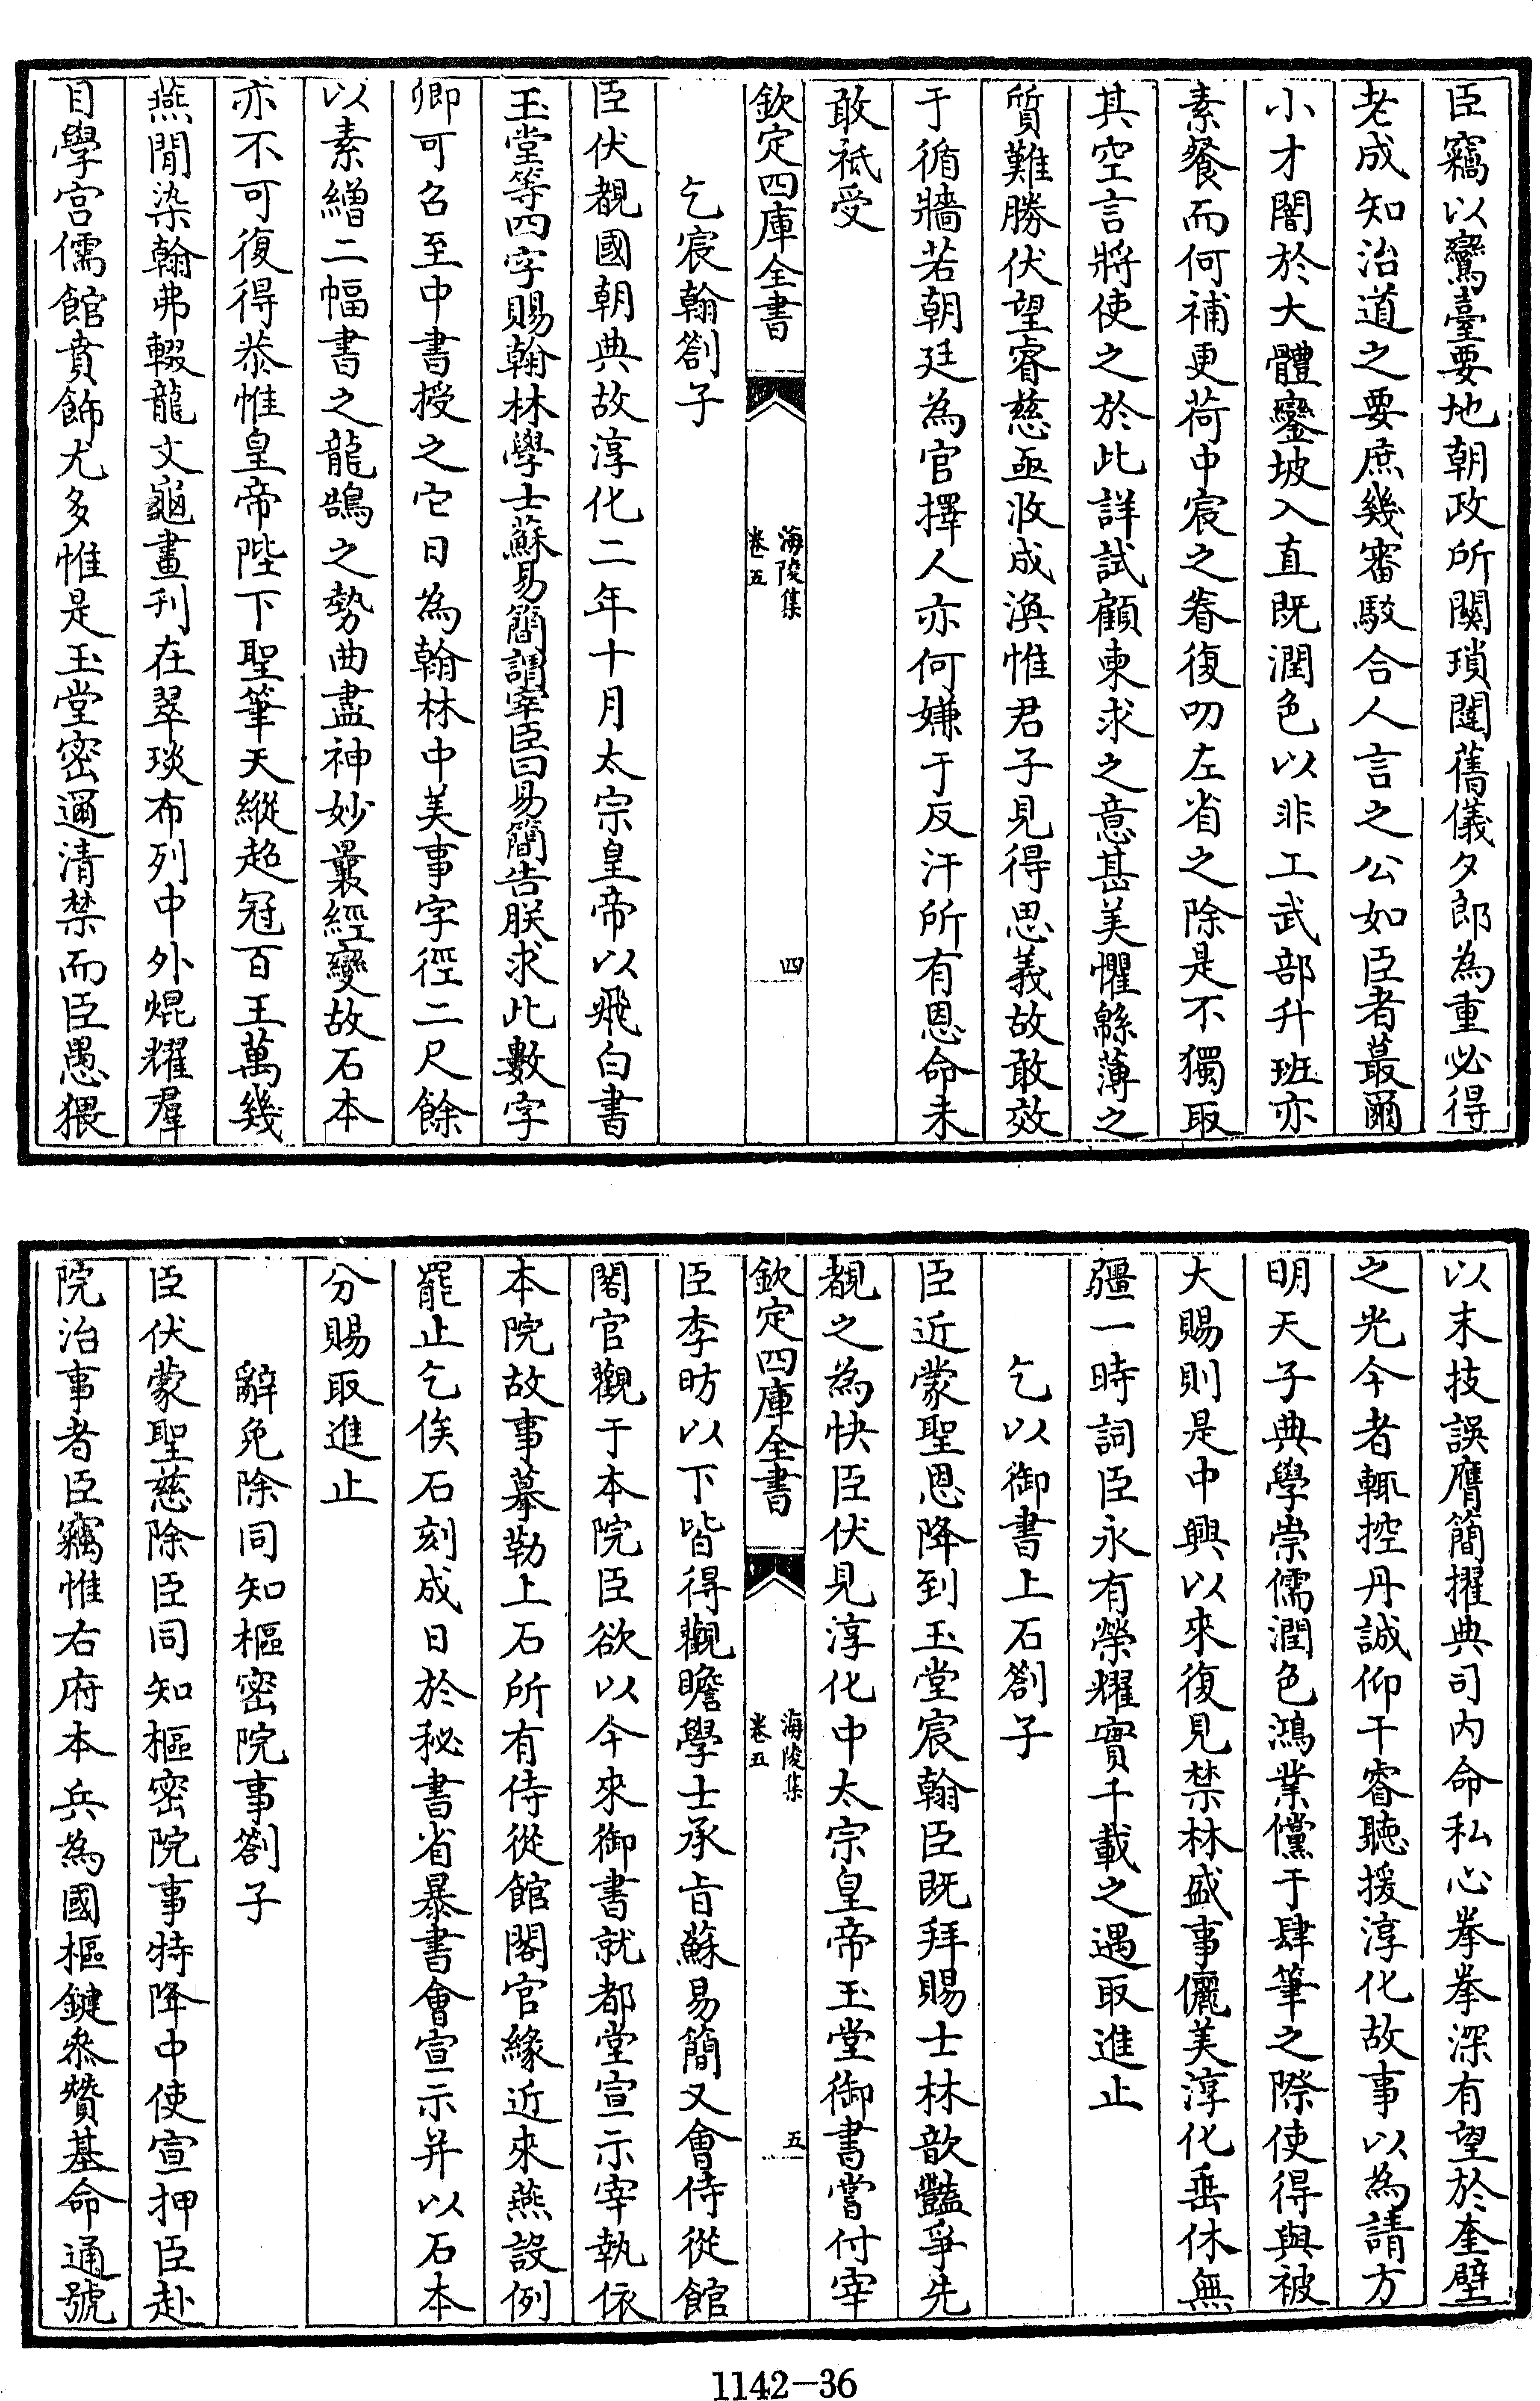 臣竊以鸞臺要地朝政所關瑣闥舊儀夕郎為重必得
老成知治道之要庶幾審駮合人言之公如臣者蕞爾
小才闇於大體鑾坡入直既潤色以非工武部升班亦
素餐而何補更荷中宸之眷復叨左省之除是不獨取
其空言將使之於此詳試顧柬求之意甚美懼緜薄之
質難勝伏望睿慈亟收成渙惟君子見得思義故敢效
于循牆若朝廷為官擇人亦何嫌于反汗所有恩命未
敢祗受
欽定四庫全書
海陵集
卷五
四
乞宸翰劄子
臣伏覩國朝典故淳化二年十月太宗皇帝以飛白書
玉堂等四字賜翰林學士蘇易簡謂宰臣曰易簡告朕求此數字
卿可召至中書授之它日為翰林中美事字徑二尺餘
以素繒二幅書之龍鵠之勢曲盡神妙曩經變故石本
亦不可復得恭惟皇帝陛下聖筆天縱超冠百王萬幾
燕閒染翰弗輟龍文龜畫刊在翠琰布列中外焜耀羣
目學宮儒館賁飾尤多惟是玉堂密邇清禁而臣愚猥
以末技誤膺簡擢典司內命私心拳拳深有望於奎壁
之光今者輒控丹誠仰干睿聽援淳化故事以為請方
明天子典學崇儒潤色鴻業儻于肆筆之際使得與被
大賜則是中興以來復見禁林盛事儷美淳化垂休無
疆一時詞臣永有榮耀實千載之遇取進止
乞以御書上石劄子
臣近蒙聖恩降到玉堂宸翰臣既拜賜士林歆豔爭先
覩之為快臣伏見淳化中太宗皇帝玉堂御書嘗付宰
欽定四庫全書
海陵集
卷五
五
臣李昉以下皆得觀瞻學士承旨蘇易簡又會侍從館
閣官觀于本院臣欲以今來御書就都堂宣示宰執依
本院故事摹勒上石所有侍從館閣官緣近來燕設例
罷止乞俟石刻成日於秘書省暴書會宣示并以石本
分賜取進止
辭免除同知樞密院事劄子
臣伏蒙聖慈除臣同知樞密院事特降中使宣押臣赴
院治事者臣竊惟右府本兵為國樞鍵叅贊基命通號
1142－36